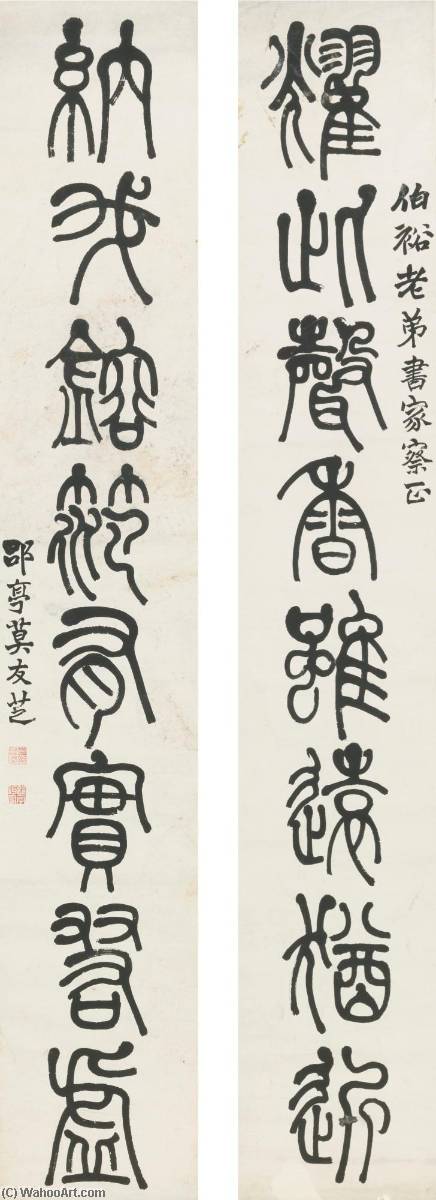 伯裕老弟書家察正
燿此聲香雖遠猶近
納我鎔笵有實若虛
郘亭莫友芝
(C) WahooArt.com